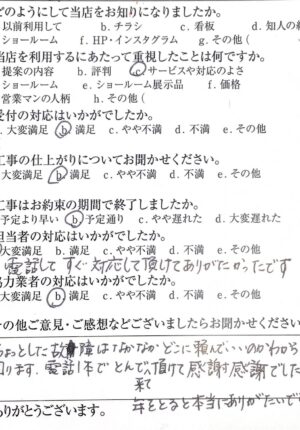 どのようにして当店をお知りになりましたか。
以前利用して b. チラシ c. 看板 d. 知人の紹
ショールーム f. HP・インスタグラム g. その他（
当店を利用するにあたって重視したことは何ですか。
提案の内容 b. 評判 c サービスや対応のよさ
ショールーム e. ショールーム展示品 f. 価格
営業マンの人柄 h. その他（
受付の対応はいかがでしたか。
大変満足 b 満足 c. やや不満 d. 不満 e. その他
工事の仕上がりについてお聞かせください。
大変満足 b 満足 c. やや不満 d. 不満 e. その他
工事はお約束の期間で終了しましたか。
予定より早い b 予定通り c. やや遅れた d. 大変遅れた
担当者の対応はいかがでしたか。
大変満足 b. 満足 c. やや不満 d. 不満 e. その他
電話して すぐ対応して頂けてありがたかったです
協力業者の対応はいかがでしたか。
大変満足 b 満足 c. やや不満 d. 不満 e. その他
その他ご意見・ご感想などございましたらお聞かせください
ちょっとした故障はなかなかどこに頼んでいいのかわから
困ります、電話1本でとんで来て頂けて感謝感謝でした
年をとると本当にありがたいで
ありがとうございます。